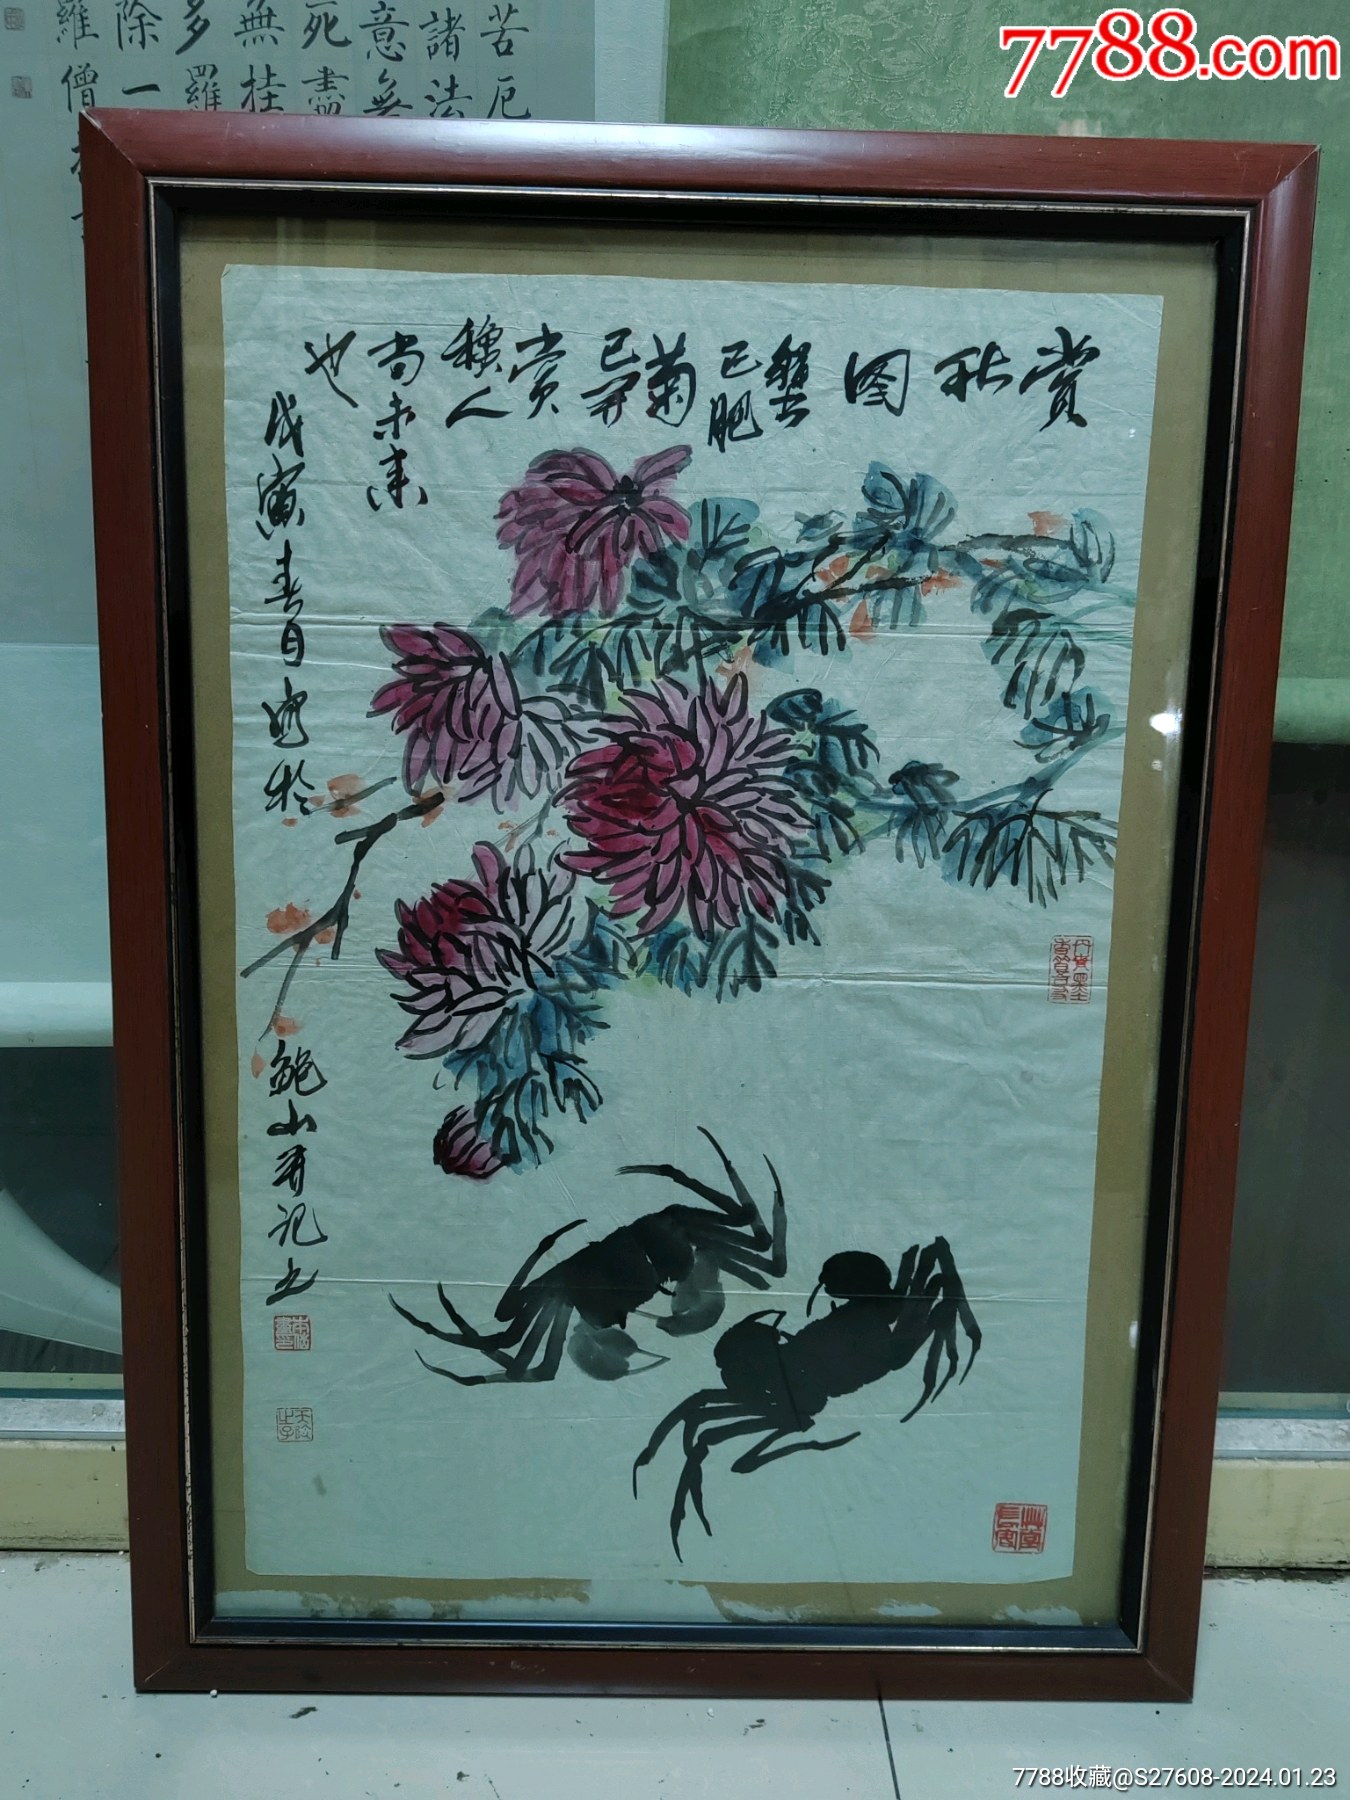 7788.com
苦厄
諸法
意無
死盡
無挂
多羅
除一
羅僧
賞秋图
蟹已肥菊已开賞
人尚未来也
戊寅春日画於鲍山并记之
7788收藏@S27608-2024.01.23